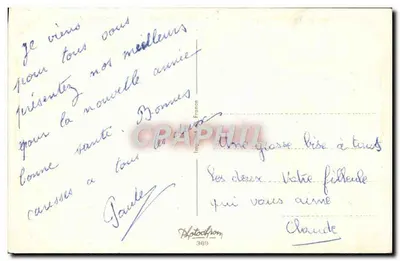 Je viens
pour tous vous
présentez nos meilleurs
pour la nouvelle année
bonne santé. Bonnes
caresses a tous les deux
Paulet
Une grosse bise à touts
les deux. Votre filleule
qui vous aime
Claude
CPARAMA
Photochrom
309